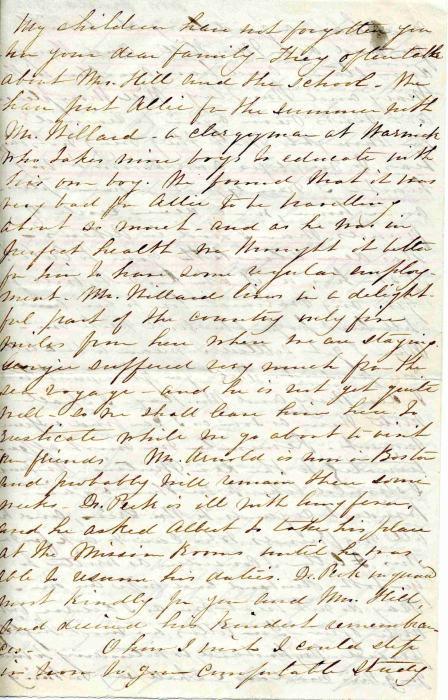 My children have not forgotten you
nor your dear family - They often talk
about Mr. Hill and the School - We
have put Allie for the summer with
Mr. Willard - a clergyman at Warwick
who takes nine boys to educate with
his own boy. We found that it was
very bad for Allie to be travelling
about so much - and as he was in
perfect health we thought it better
for him to have some regular employ-
ment - Mr. Willard lives in a delight-
ful part of the country only five
miles from here where we are staying.
Georgie suffered very much from the
sea voyage - and he is not yet quite
well - so we shall leave him here to
rusticate while we go about to visit
our friends - Mr. Arnold is now in Boston
and probably will remain there some
weeks. Dr. Peck is ill with lung fever,
and he asked Albert to take his place
at the Mission Rooms until he was
able to resume his duties. Dr. Peck inquired
most kindly for you and Mrs. Hill,
and desired his kindest remembran
ces - O how I wish I could step
in now to your comfortable study